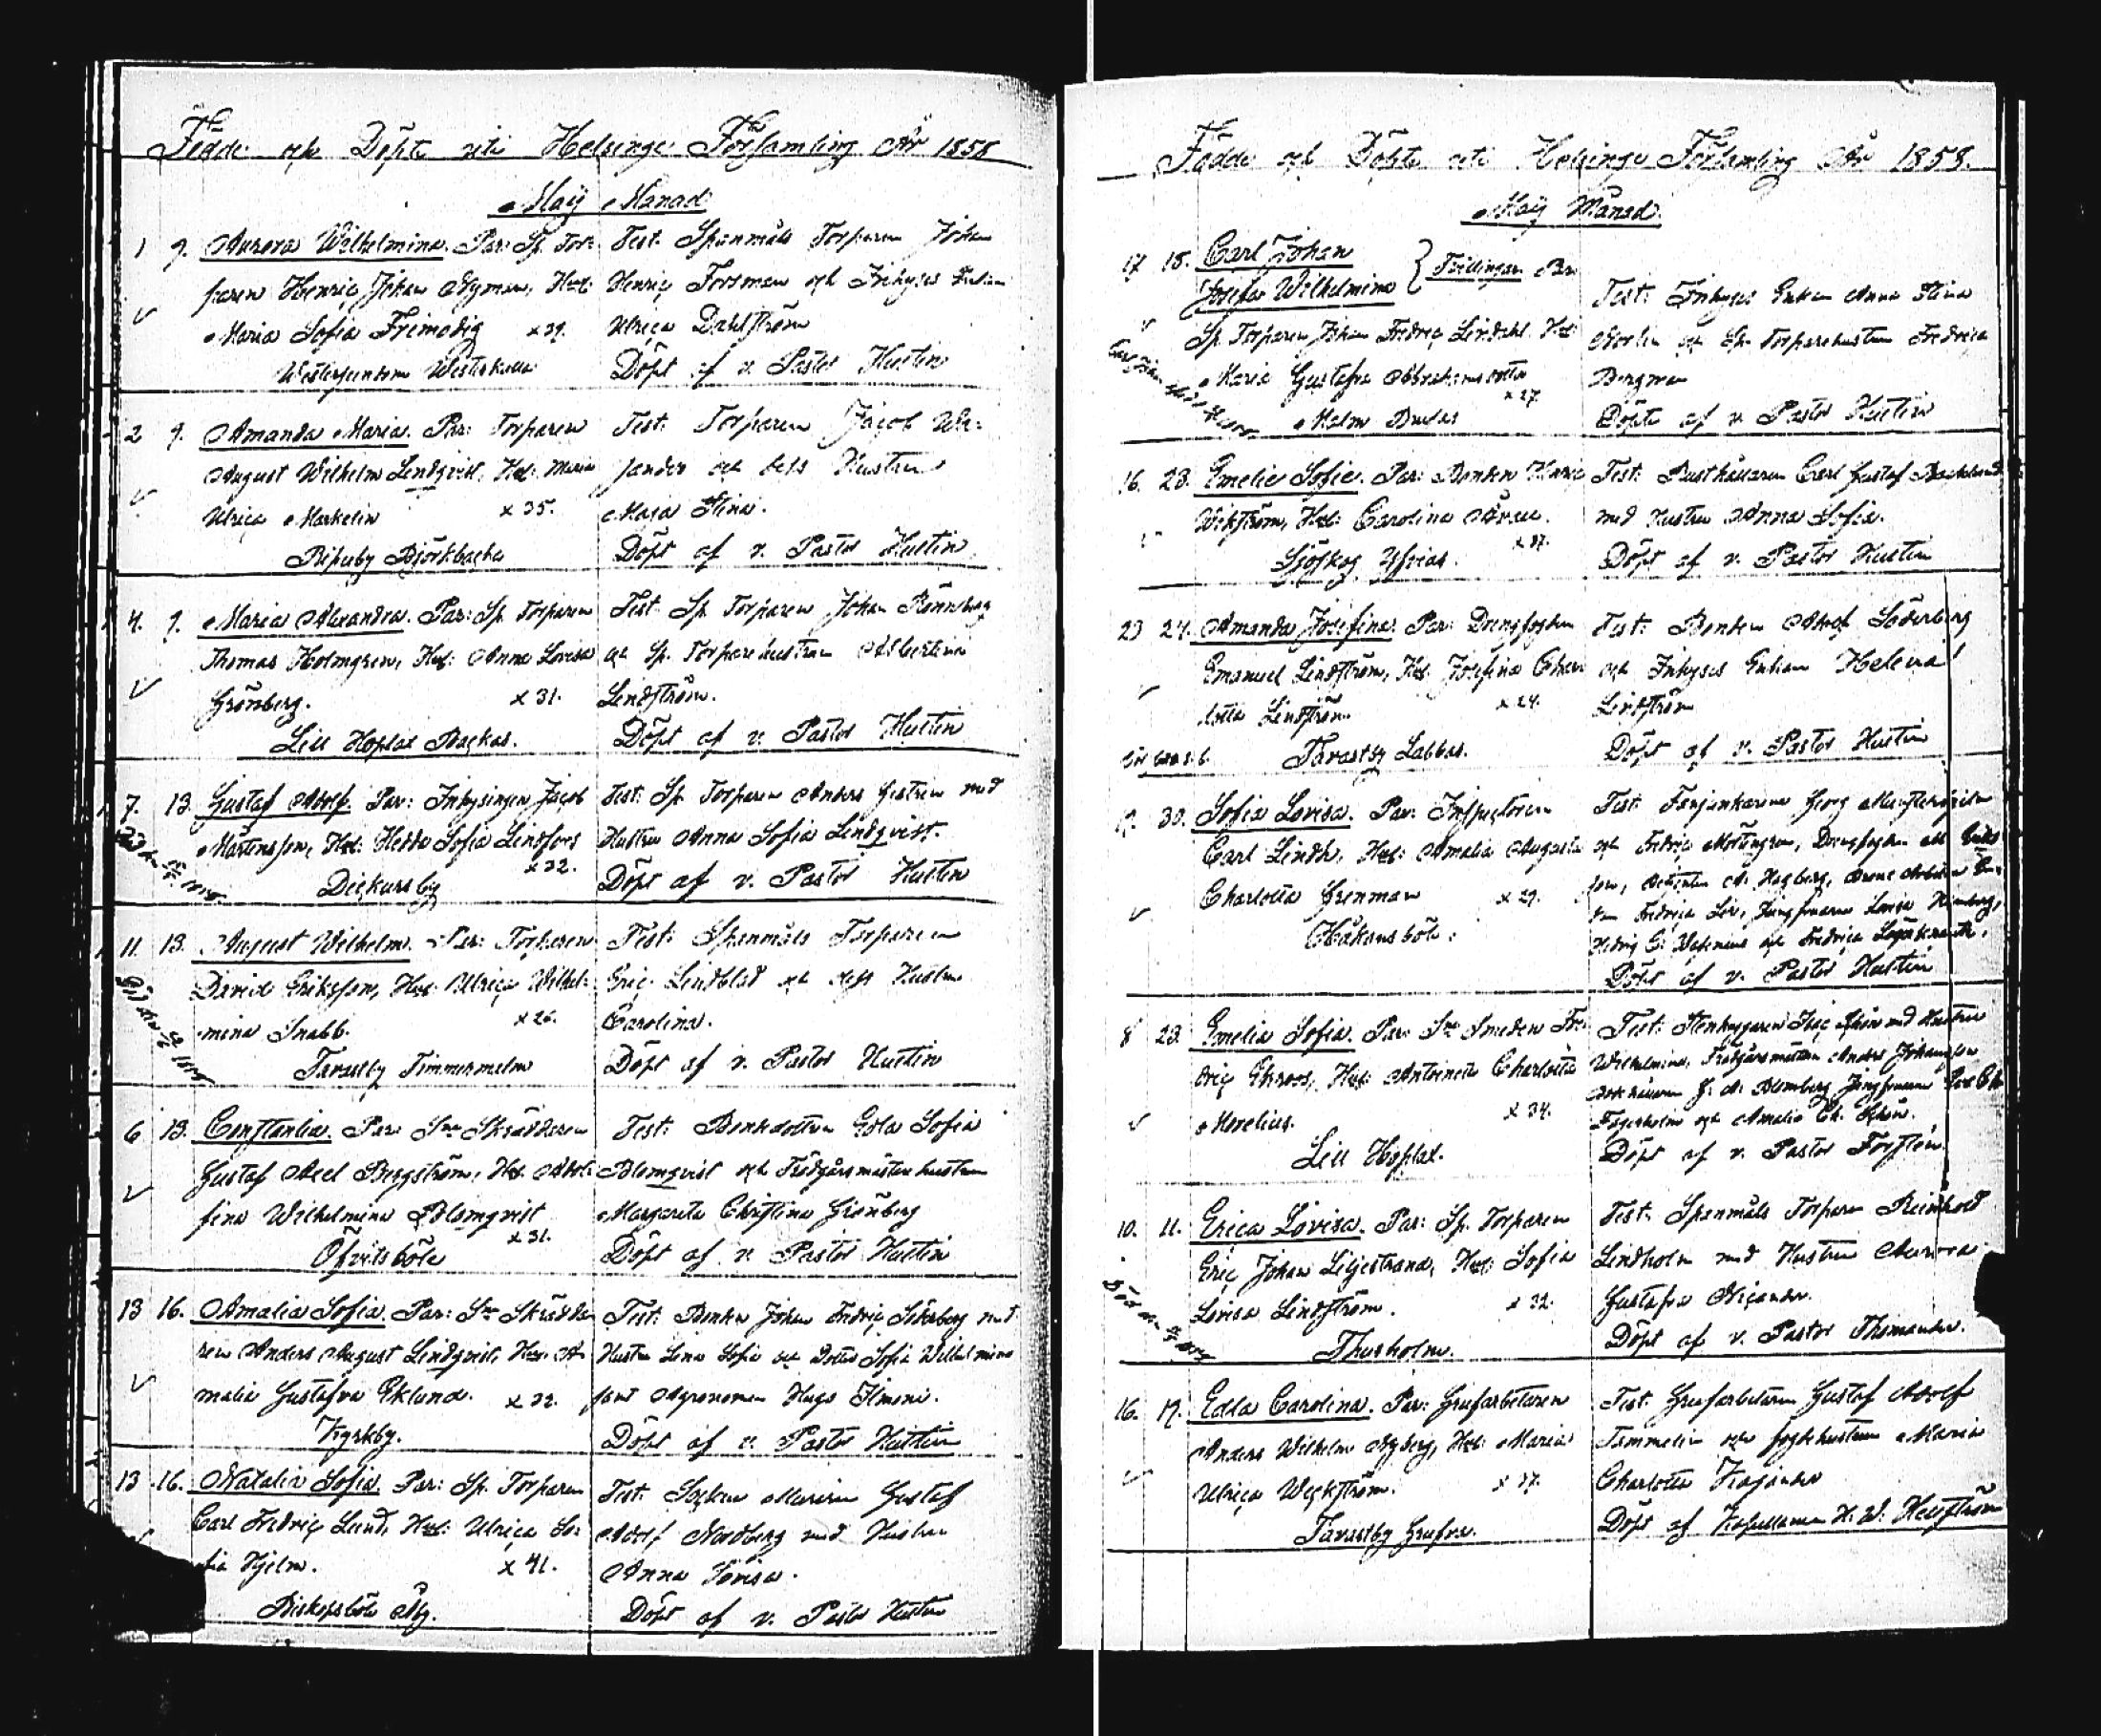 Födde och Döpte uti Helsinge Församling År 1858
Maij Månad
1 9. Aurora Wilhelmina. Par: Sp. Tor-
paren Henric Johan Nyman, Hust:
Maria Sofia Freimodig x 29.
Westerkulla
Test: Spanmåls Torparen Johan
Henric Forsman och Inhyses
Ulrica Dahlström
Döpt af v. Pastor Hustin
2 9. Amanda Maria. Par: Torparen
August Wilhelm Lindqvist, Hust: Maria
Ulrica Markelin x 35.
Björkbacka
Test: Torparen Jacob Wa-
lander och dess Hustru
Maja Stina.
Döpt af v. Pastor Hustin
4. 9. Maria Alexandra. Par: Sp. Torparen
Thomas Holmgren, Hust: Anna Lovisa
Grönberg. x 31.
Lill Hoplax Backas.
Test: Sp. Torparen Johan Rönnberg
och Sp. Torparehustrun Albertina
Lindström.
Döpt af v. Pastor Hustin
7. 13. Gustaf Adolf. Par: Inhysingen Jacob
Mårtensson, Hust: Hedda Sofia Lindfors
x 32.
Dickursby
Test: Sp. Torparen Anders Gestrin med
Hustru Anna Sofia Lindqvist.
Döpt af v. Pastor Hustin
11. 13. August Wilhelm. Par: Torparen
David Eriksson, Hust: Ulrica Wilhel-
mina Snabb. x 26.
Tavastby Timmermalm
Test: Spanmåls Torparen
Eric Lindblad och dess Hustru
Carolina.
Döpt af v. Pastor Hustin
6 13. Constantia. Par: Skräddaren
Gustaf Axel Bergström, Hust: Adol-
fina Wilhelmina Blomqvist
x 31.
Öfvitsböle
Test: Bondedottren Edla Sofia
Blomqvist och Trädgårsmästarehustrun
Margareta Christina Grönberg
Döpt af v. Pastor Hustin
13 16. Amalia Sofia. Par: Skrädda-
ren Anders August Lindqvist, Hust: A-
malia Gustafva Eklund. x 22.
Kyrkby.
Test: Bonden Johan Fredric Söderberg med
Hustru Lena Sofia och Dotter Sofia Wilhelmina
samt Agronomen Hugo Ilmoni.
Döpt af v. Pastor Hustin
13 16. Natalia Sofia. Par: Sp. Torparen
Carl Fredric Lund, Hust: Ulrica So-
fia Hjelm. x 41.
Biskopsböle
Test: Socken Muraren Gustaf
Adolf Nordberg med Hustru
Anna Lovisa.
Döpt af v. Pastor Hustin
Födde och Döpte uti Helsinge Församling År 1858.
Maij Månad.
17 18. Carl Johan
Josefa Wilhelmina } Tvillingar. Par:
Sp. Torparen Johan Fredric Lindahl. Hust:
Maria Gustafva Abrahamsdotter
x 27.
Malm
Test: Inhyses Enkan Anna Stina
Norlin och Sp. Torparehustrun Fredrica
Bergman
Döpte af v. Pastor Hustin
16. 23. Emelie Sofie. Par: Bonden Henric
Wikström, Hust: Carolina
x 37.
Sjöskog
Test: Rusthållaren Carl Gustaf Backlund
med Hustru Anna Sofia.
Döpt af v. Pastor Hustin
23 24. Amanda Josefina. Par: Drengfogden
Emanuel Lindström, Hust: Josefina Char-
lotta Lindström. x 24.
Tavastby Labbas.
Test: Bonden Adolf Söderberg
och Inhyses Enkan Helena
Lindström
Döpt af v. Pastor Hustin
30. Sofia Lovisa. Par: Inspectoren
Carl Lindh, Hust: Amalia Augusta
Charlotta Grenman x 29.
Håkansböle.
Test: Georg
och Fredric
Hagberg,
Fredrica
Hedrig
Döpt af v. Pastor Hustin
8 23. Emelia Sofia. Par: Smeden Fre-
dric Ekroos, Hust: Antoinetta Charlotta
Morelius. x 34.
Lill Hoplax.
Test: Stenhuggaren Isac med Hustru
Wilhelmina, Trädgårsmästaren Anders Johansson
Blomberg Jungfruarna
Fagerholm och Amalia Ch.
Döpt af v. Pastor Forssten.
10. 11. Erica Lovisa. Par: Sp. Torparen
Eric Johan Liljestrand, Hust: Sofia
Lovisa Lindström. x 32.
Thusholm.
Test: Spanmåls Torparen Reinhold
Lindholm med Hustru Aurora
Gustafva Nicander.
Döpt af v. Pastor Thomander.
16. 17. Edla Carolina. Par: Grufarbetaren
Anders Wilhelm Nyberg, Hust: Maria
Ulrica Weckström. x 37.
Tavastby Grufva.
Test: Grufarbetaren Gustaf Adolf
Tammelin och fogdehustrun Maria
Charlotta Kajander
Döpt af Kapellanen H. W.